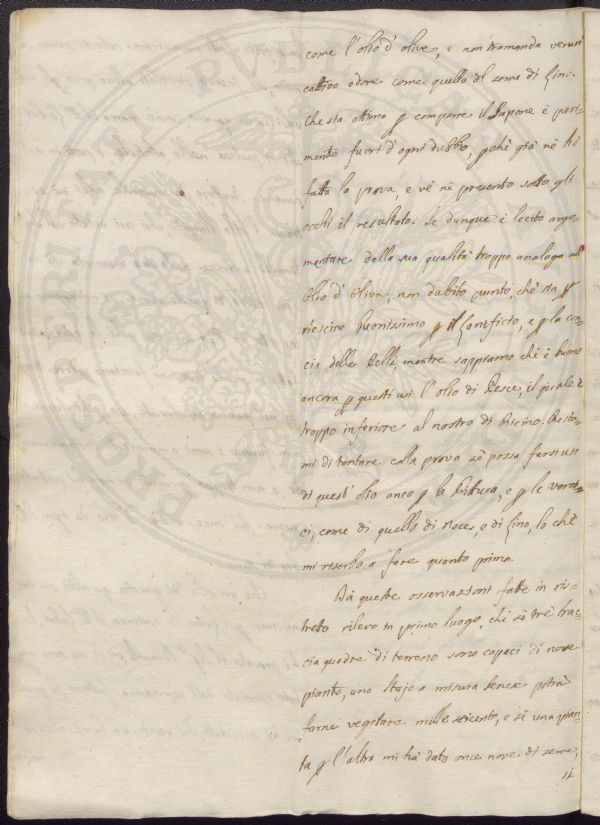 come l'olio d'olive, e non tramanda verun
cattivo odore come quello del seme di Lino.
Che sia ottimo p comporre il Sapone è pari-
mente fuori d'ogni dubbio, pchè già nè hò
fatta la prova, e vè nè presento sotto gli
occhi il resultato. Se dunque è lecito argo-
mentare dalla sua qualità troppo analoga all'
Olio d'Oliva, non dubito punto, chè sia p
riescire buonissimo p il Lanificio, e p la con-
cia delle Pelli, mentre sappiamo chè è buono
ancora p questi usi l'olio di Pesce, il quale è
troppo inferiore al nostro di Ricino. Resta-
mi di tentare colla prova sè possa farsi uso
di quest'olio anco p la Pittura, e p le verni-
ci, come di quello di Noce, e di Lino, lo chè
mi riserbo a fare quanto prima.
Dà queste osservazioni fatte in ris-
tretto rilevo in primo luogo, chè sè trè brac-
cia quadre di terreno sono capaci di nove
piante, uno Stajo a misura Senese potrà
farne vegetare mille seicento, e sè una pian-
ta p l'altra mi hà dato once nove di seme,
si
PROPRIETATI PVBLI